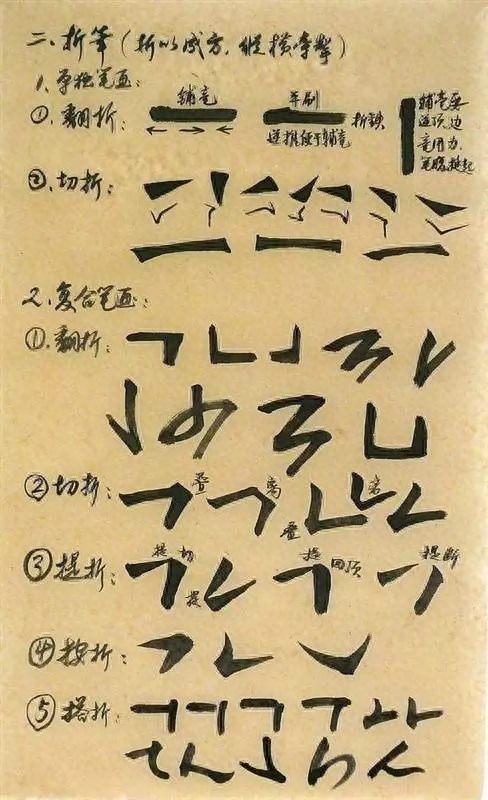 二、折笔(折以成方、纵横牵掣)
1、单独笔画:
①、翻折: 铺毫 平刷 折锋
逆推便于铺毫
铺毫要
逆顶、边
竟用力、
笔腹提起
②、切折:
2、复合笔画:
①、翻折:
②切折: 叠 离 叠 离
③提折: 提 切 提 提 回顶 提断
④按折:
⑤搭折: